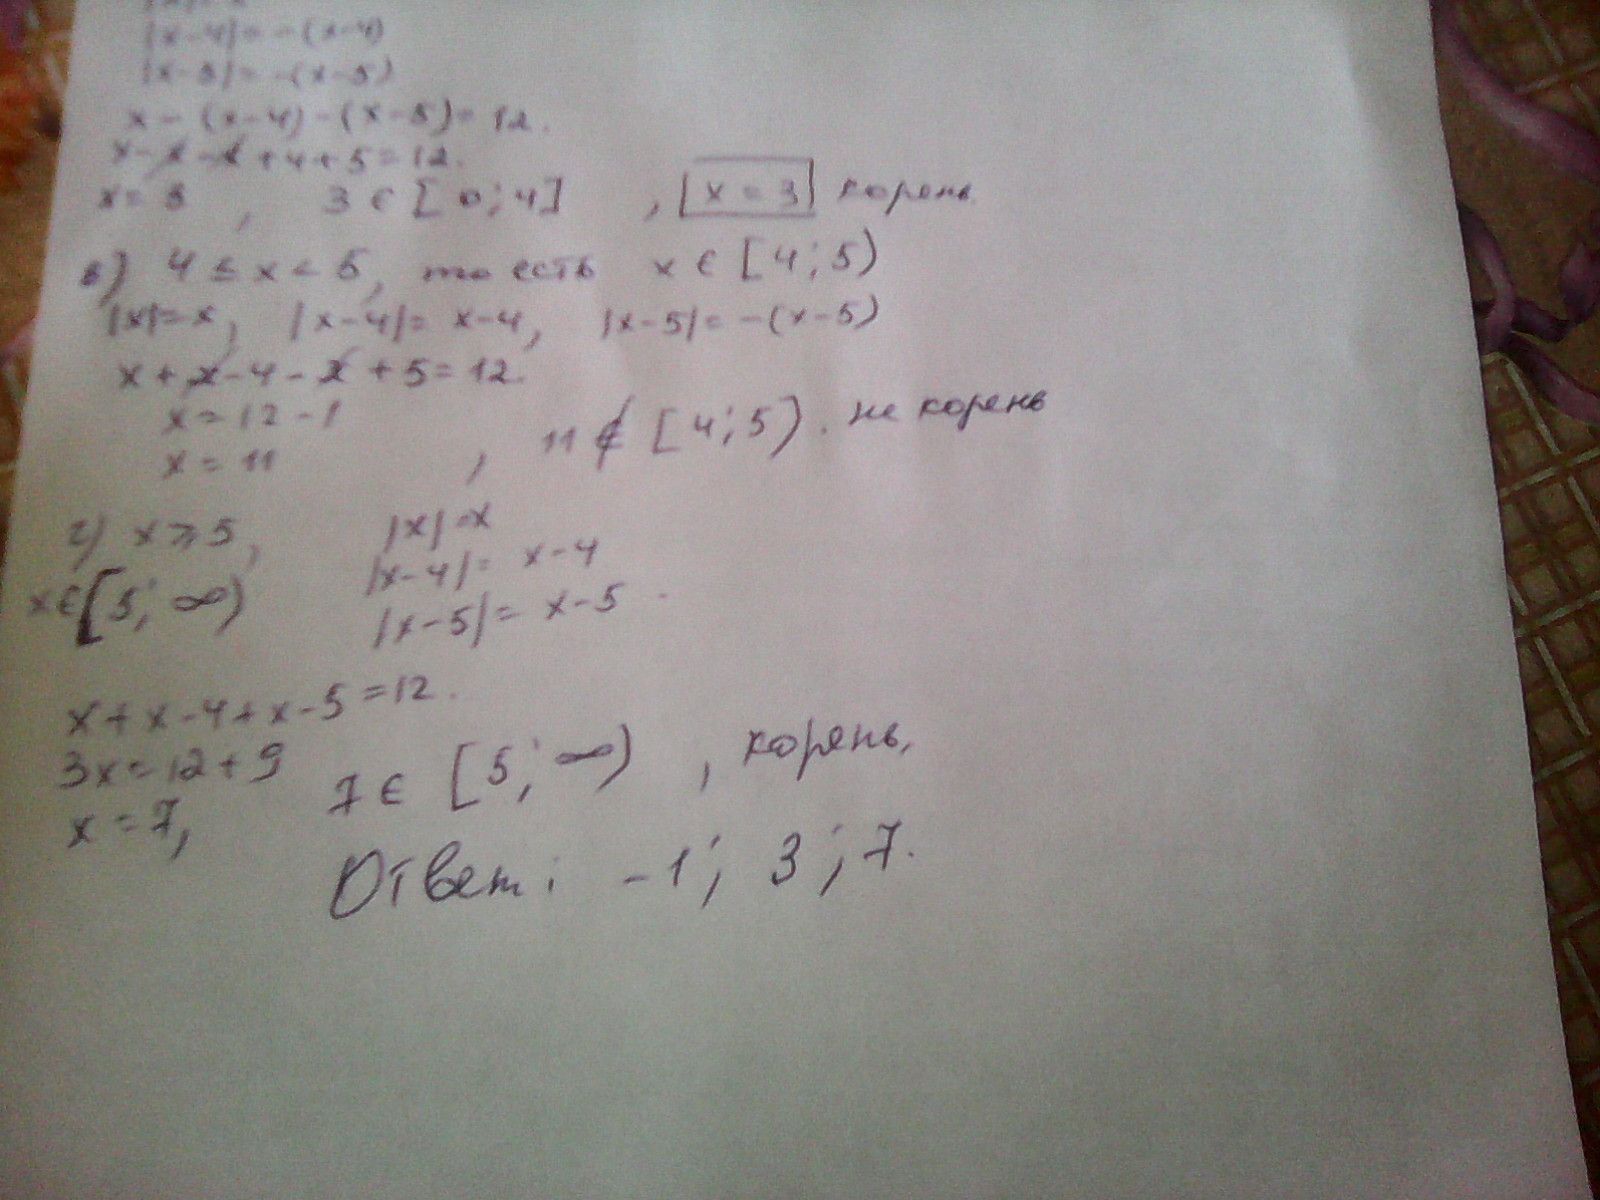 |x-4|=-(x-4)
|x-5|=-(x-5)
x-(x-4)-(x-5)=12.
x-x-x+4+5=12.
x=3, 3∈[0;4], x=3 корень.
в) 4≤x<5, то есть x∈[4;5)
|x|=x, |x-4|=x-4, |x-5|=-(x-5)
x+x-4-x+5=12.
x=12-1
x=11, 11∉[4;5). не корень
г) x≥5, |x|=x
|x-4|=x-4
x∈[5;∞) |x-5|=x-5.
x+x-4+x-5=12.
3x=12+9
x=7, 7∈[5;∞), корень,
Ответ: -1; 3; 7.